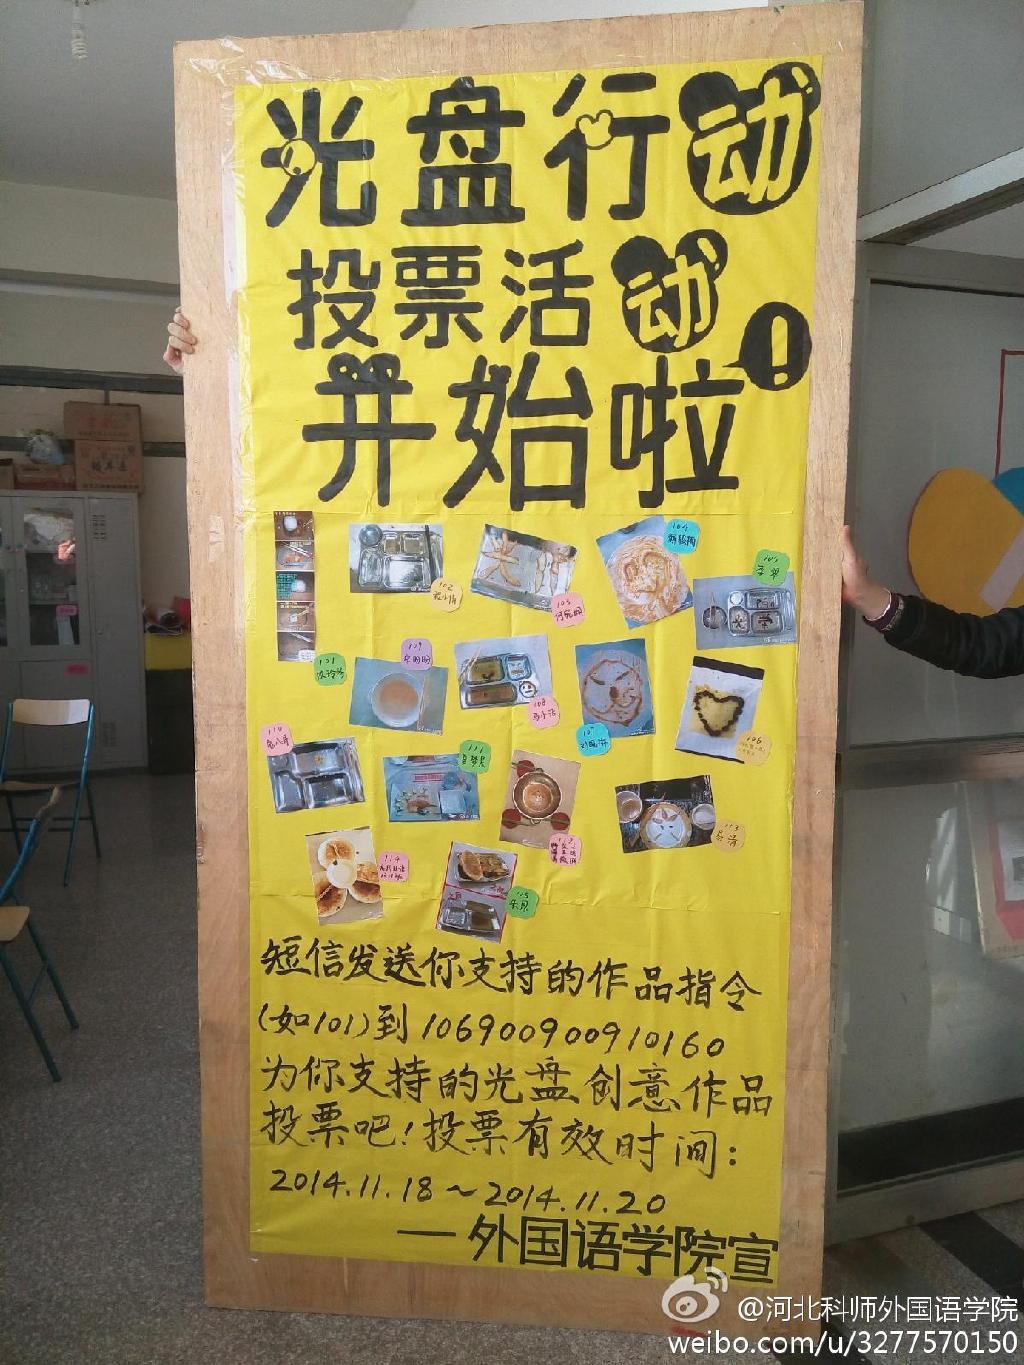 光盘行动
投票活动
开始啦!
101
102
103
104
105
李翠
109
108
107
106
110
111
112
113
易涛
114
115
乐贝
短信发送你支持的作品指令
(如101)到106900900910160
为你支持的光盘创意作品
投票吧!投票有效时间:
2014.11.18~2014.11.20
—外国语学院宣
@河北科师外国语学院
weibo.com/u/3277570150